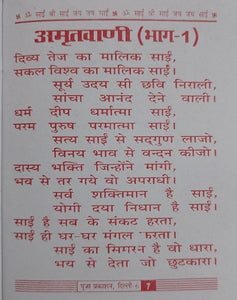 ॐ साईं श्री साईं जय जय साईं
अमृतवाणी (भाग-1)
दिव्य तेज का मालिक साईं,
सकल विश्व का मालिक साईं।
सूर्य उदय सी छवि निराली,
सांचा आनंद देने वाली।
धर्म दीप धर्मात्मा साईं,
परम पुरुष परमात्मा साईं।
सत्य साईं से सद्गुण लाजो,
विनय भाव से वन्दन कीजो।
दास्य भक्ति जिन्होंने मांगी,
भव से तर गये वो अपराधी।
सर्व शक्तिमान है साईं,
योगी दया निधान है साईं।
साईं है सब के संकट हरता,
साईं ही घर-घर मंगल करता।
साईं का सिमरन है वो धारा,
भव से देता जो छुटकारा।
पूजा प्रकाशन, दिल्ली-6
7